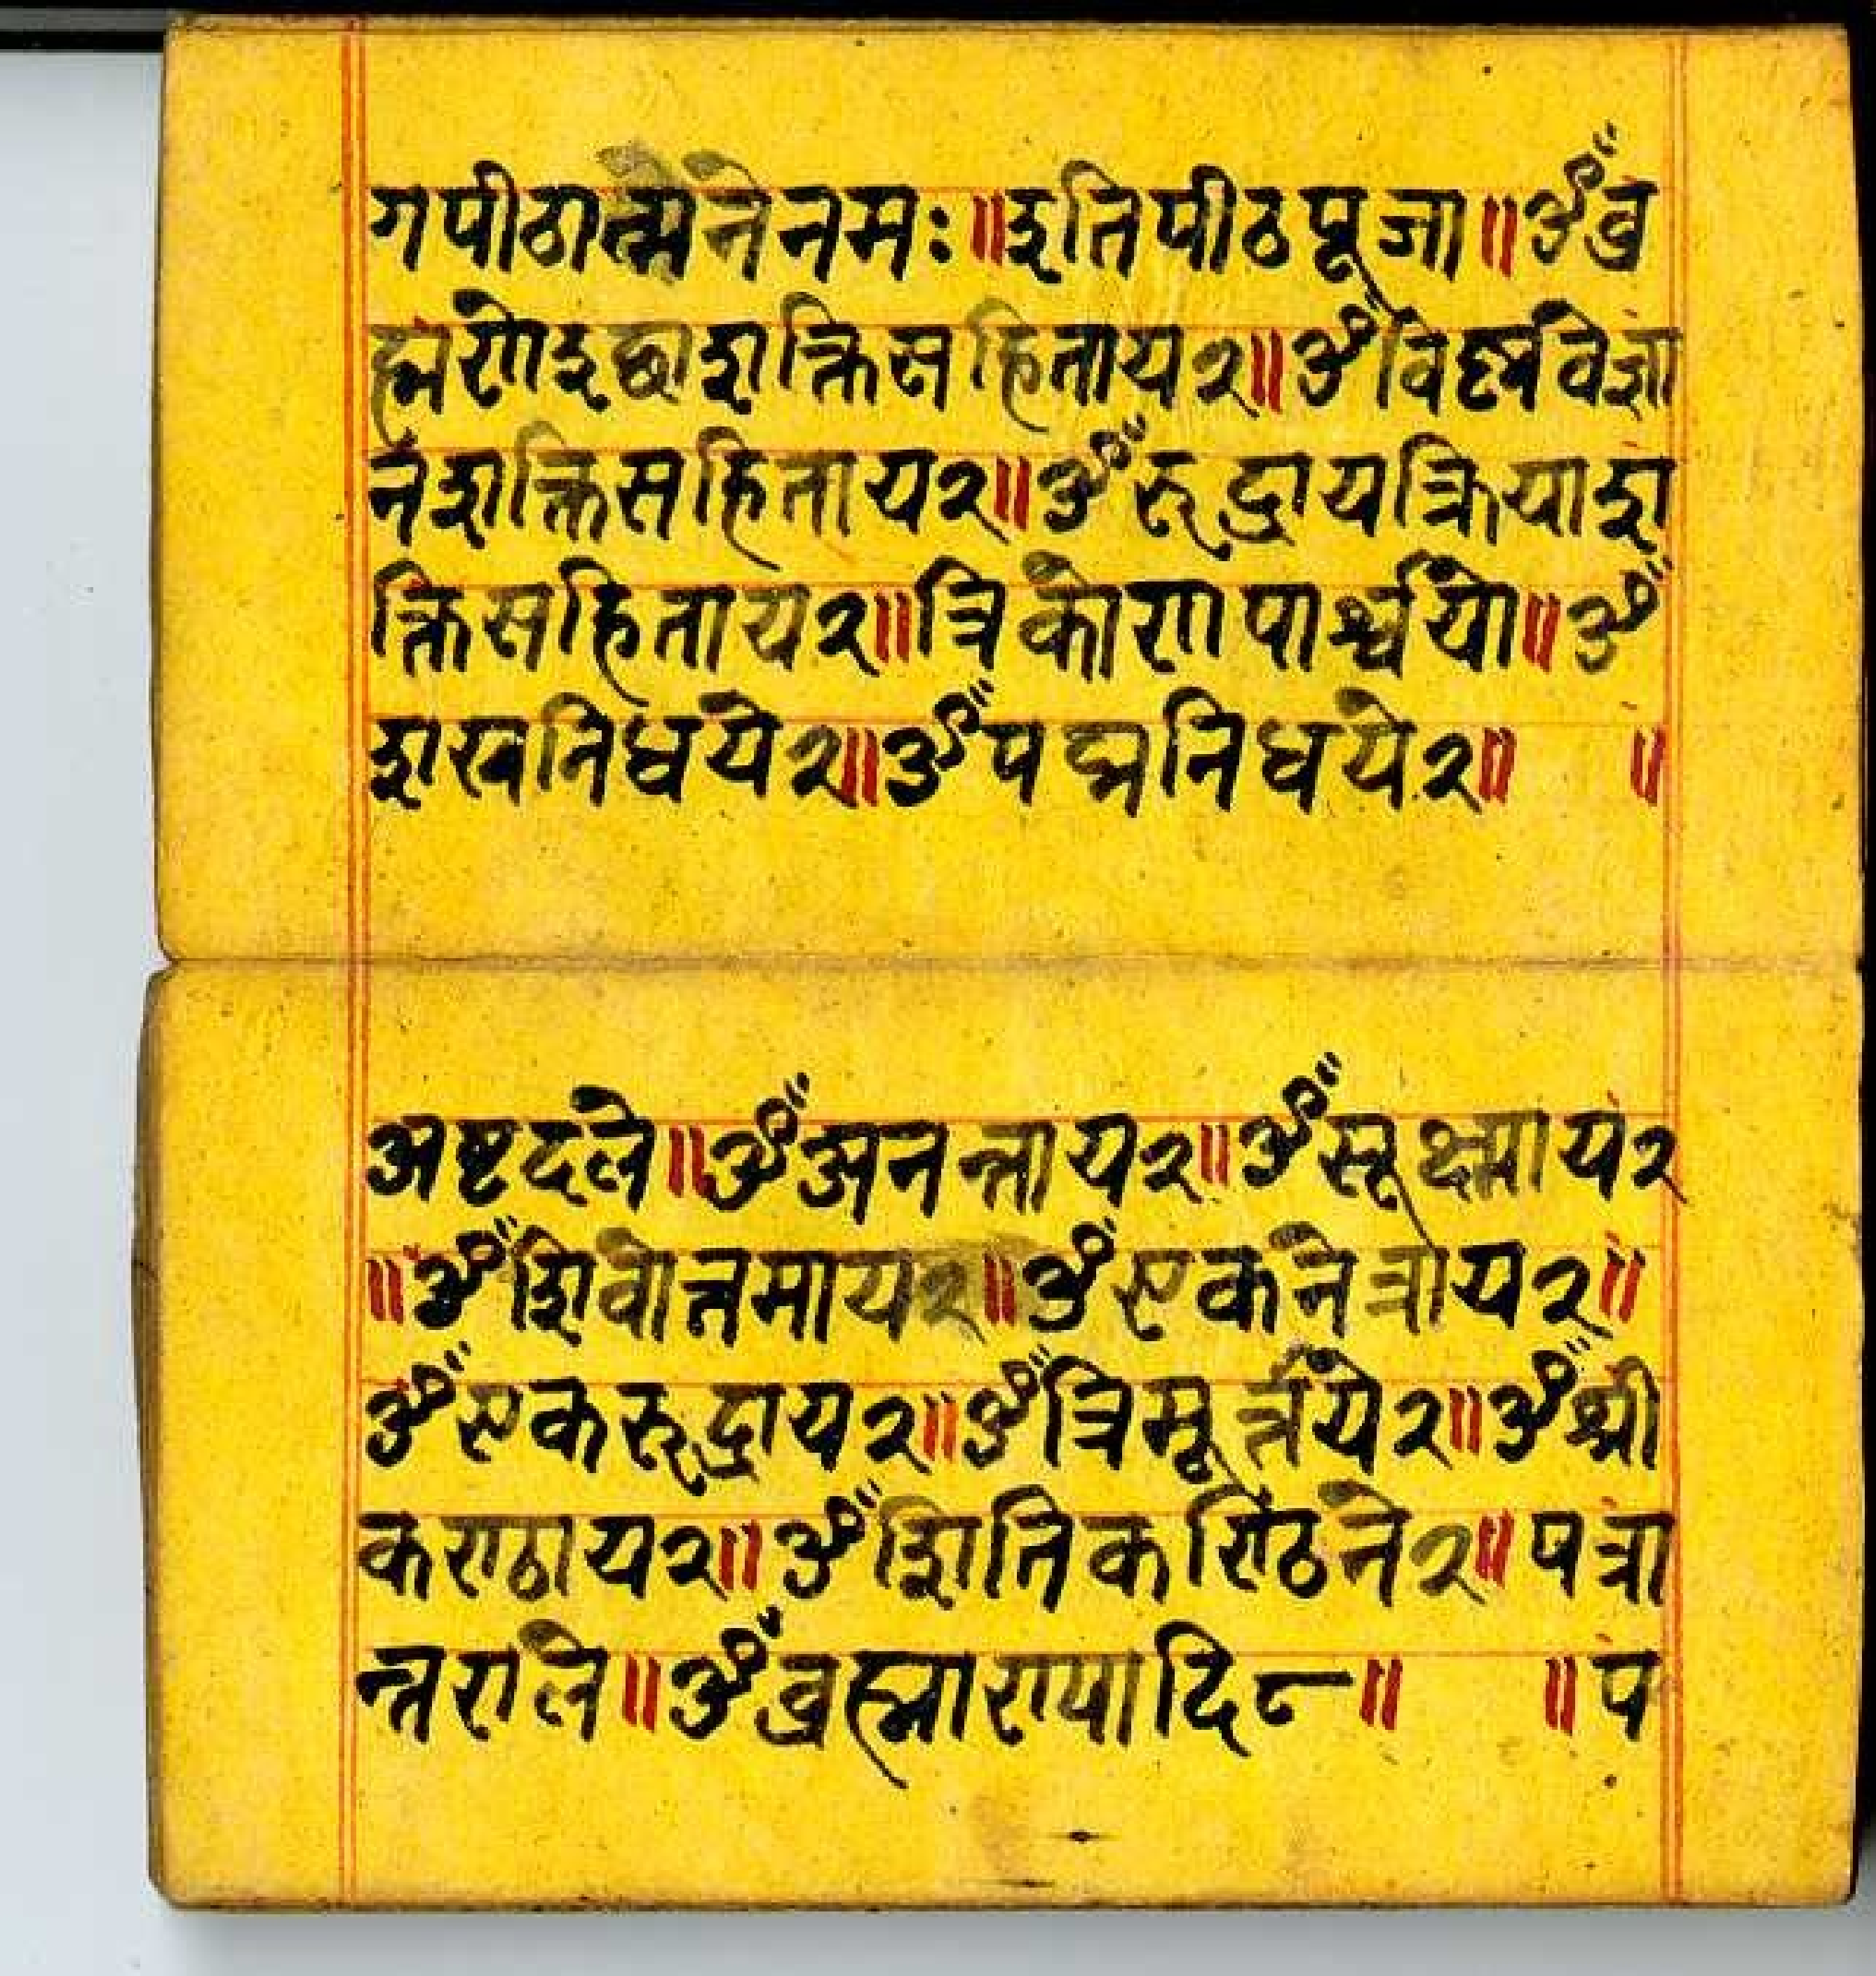 गपीठात्मनेनमः॥इतिपीठपूजा॥ॐब्र
ह्मणेइछाशक्तिसहिताय२॥ॐविष्णवेज्ञा
नशक्तिसहिताय२॥ॐरुद्रायक्रियाश
क्तिसहिताय२॥त्रिकोणपार्श्वयो॥ॐ
शखनिधये२॥ॐपद्मनिधये२॥ ॥
अष्टदले॥ॐअनन्ताय२॥ॐसूक्ष्माय२
॥ॐशिवोत्तमाय२॥ॐएकनेत्राय२॥
ॐएकरुद्राय२॥ॐत्रिमूर्त्तये२॥ॐश्री
कण्ठाय२॥ॐशितिकण्ठिने२॥पत्रा
न्तराले॥ॐब्रह्माण्यादि८॥ ॥प